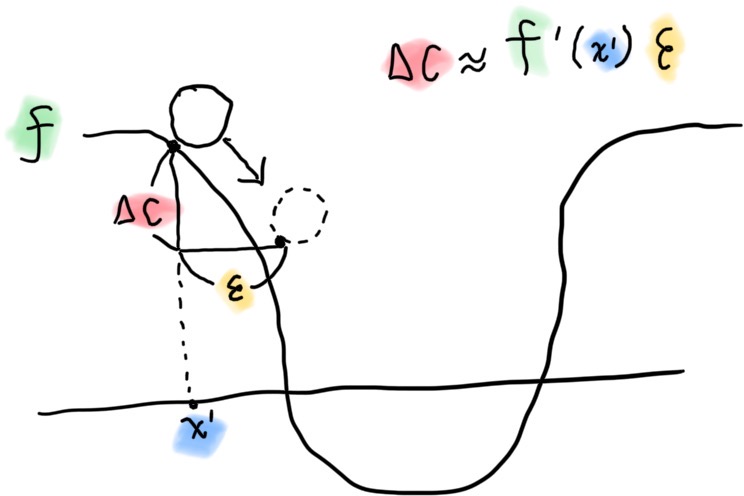 ΔC ≈ f'(x') ε
f
ΔC
ε
x'